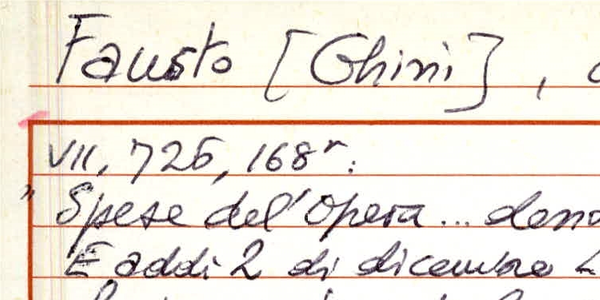 Fausto [Ghini],
VII, 725, 168r:
" Spese dell'Opera... deno
E addì 2 di dicembre